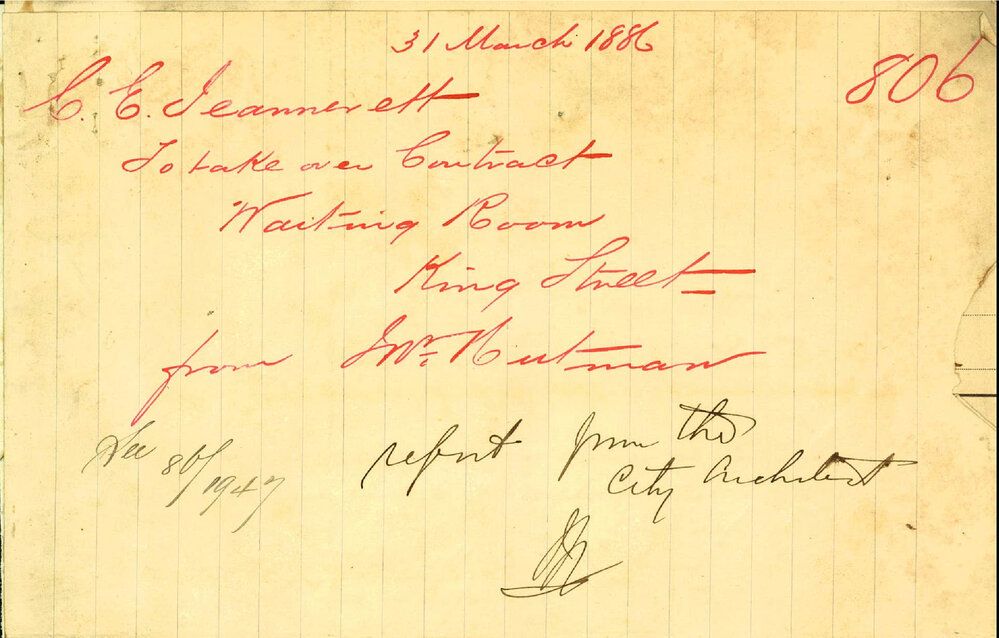 31 March 1886
806
C. E. Jeannerett
To take over Contract
Waiting Room
King Street
from Hutman
report from the
City Architect
See 86/1947